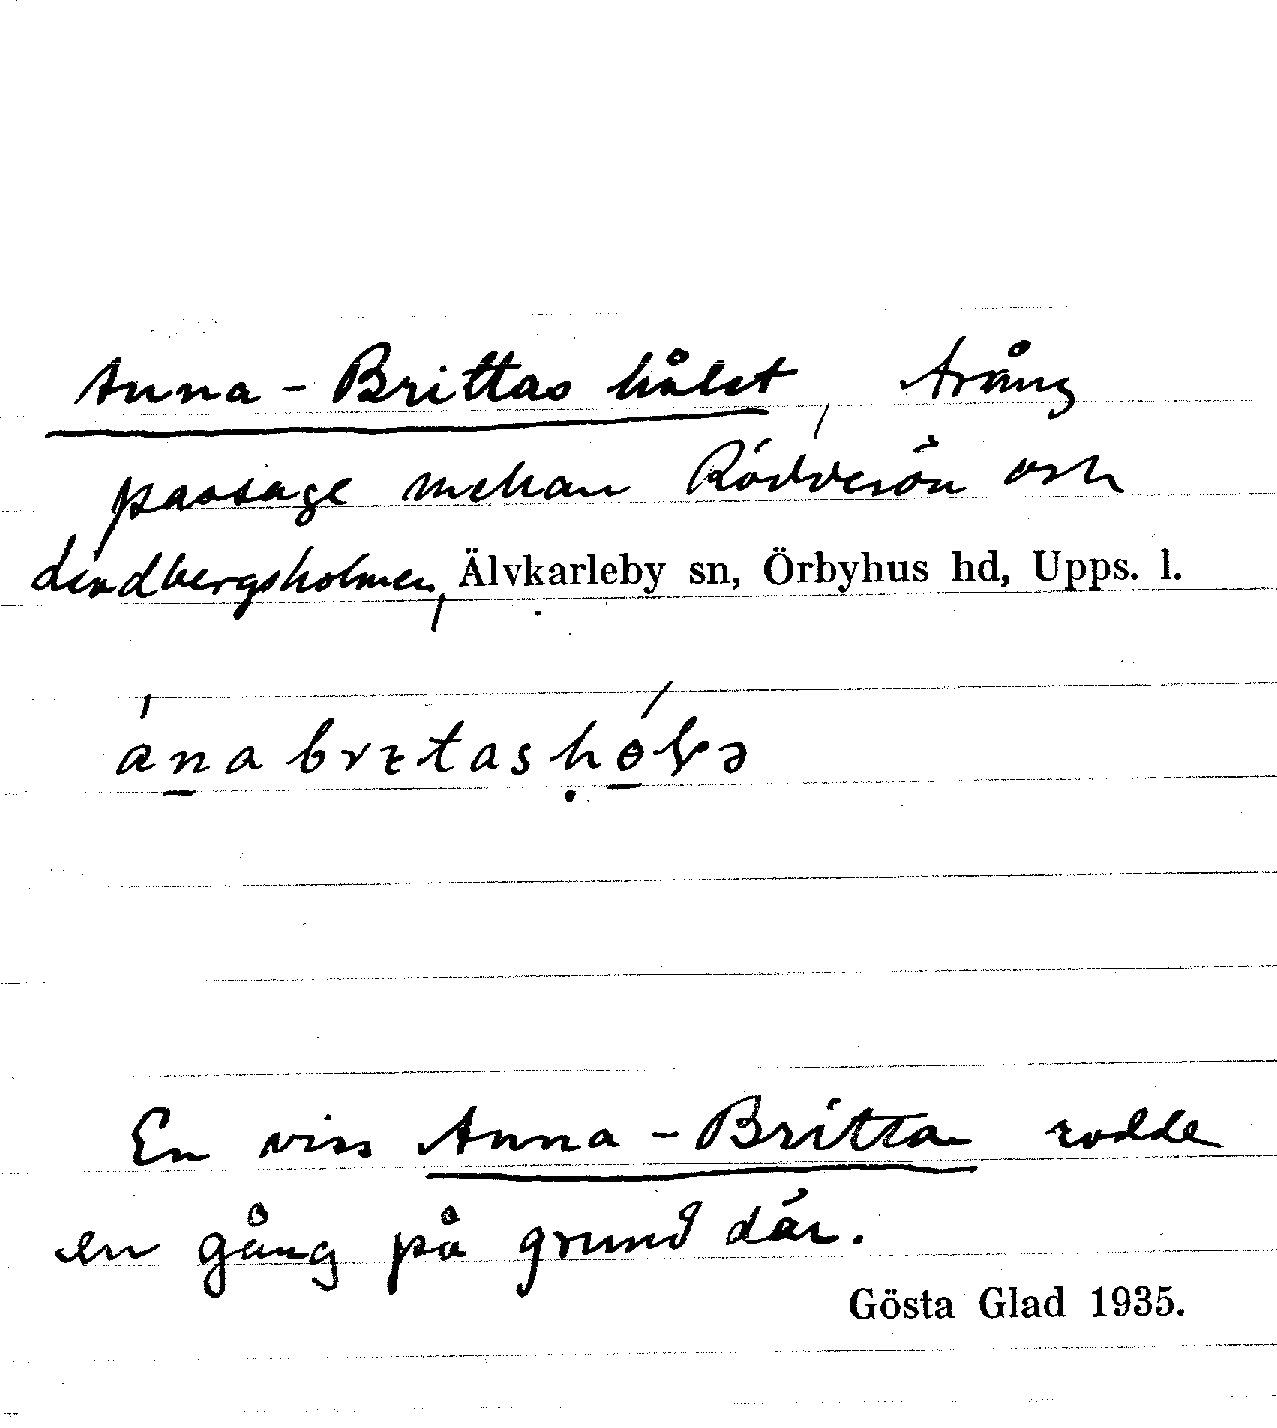 Anna-Brittas hålet, trång
passage mellan Rödderön och
Lindbergsholmen, Älvkarleby sn, Örbyhus hd, Upps. l.
En viss Anna-Britta rodde
en gång på grund där.
Gösta Glad 1935.